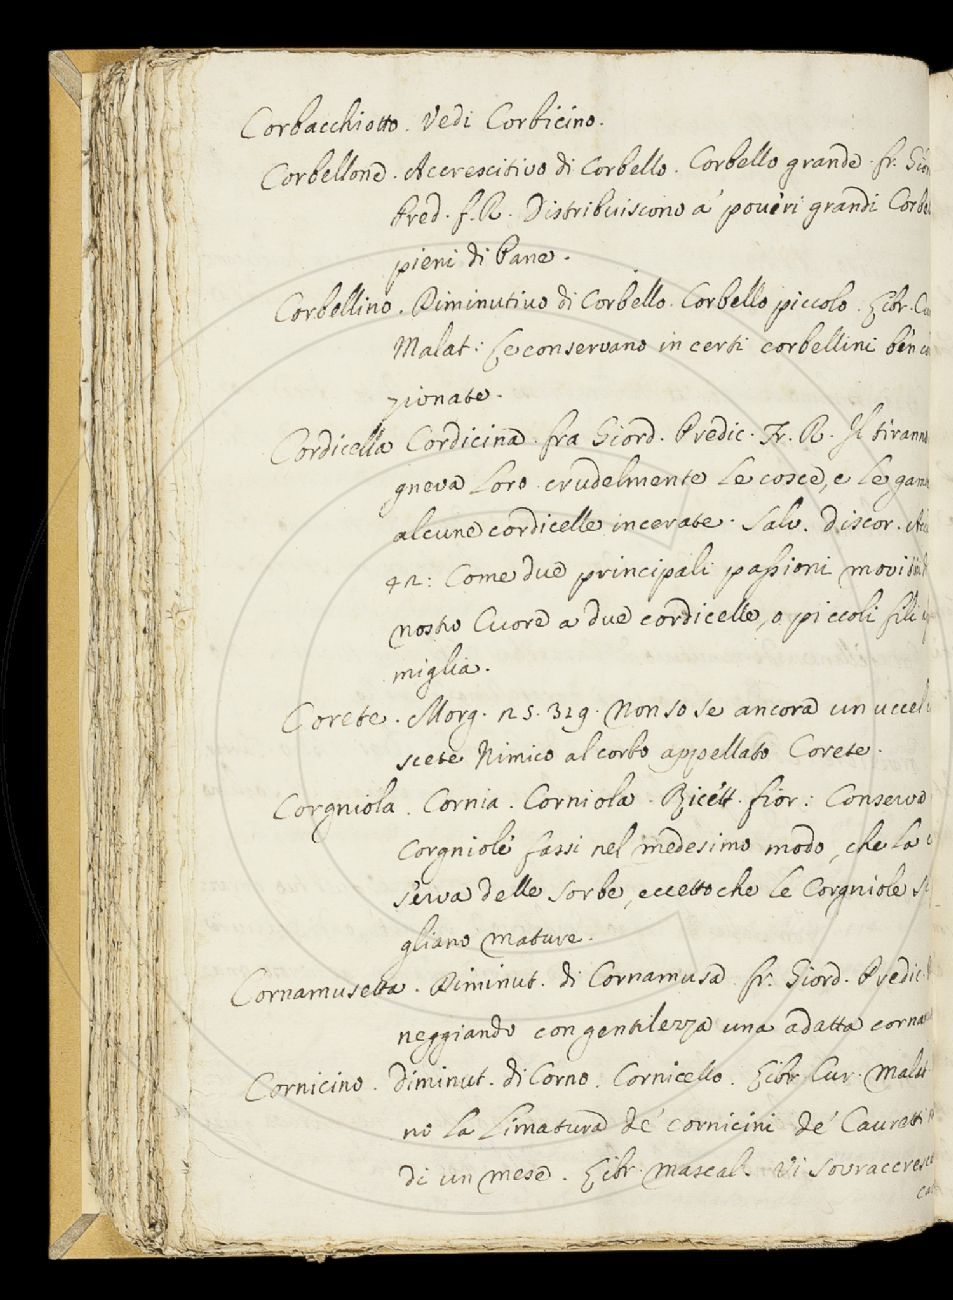 Corbacchiotto. Vedi Corbicino.
Corbellone. Accrescitivo di Corbello. Corbello grande. fr. Gior
Pred. f. R. Distribuiscono a' poveri grandi Corbel
pieni di Pane.
Corbellino. Diminutivo di Corbello. Corbello piccolo. Libr. Cu
Malat: Le conservano in certi corbellini ben
zionate.
Cordicella Cordicina. fra Giord. Predic. Fr. R. Il tirann
gneva loro crudelmente le cosce, e le gam
alcune cordicelle incerate. Salv. Discor.
42: Come due principali passioni movi
nostro Cuore a due cordicelle, o piccoli fili
miglia.
Corete. Morg. 25. 319. Non so se ancora un uccel
scete Nimico al corbo appellato Corete.
Corgniola. Cornia. Corniola. Ricett. fior: Conserva
Corgniole fassi nel medesimo modo, che la
serva delle Sorbe, eccetto che le Corgniole si
gliano mature.
Cornamusetta. Diminut. di Cornamusa fr. Giord. Predic.
neggiando con gentilezza una adatta corna
Cornicino. Diminut. di Corno. Cornicello. Libr Cur. Malat
no la Limatura de' cornicini de' Cauretti
di un mese. Libr. mascal. Vi Sovraccresc